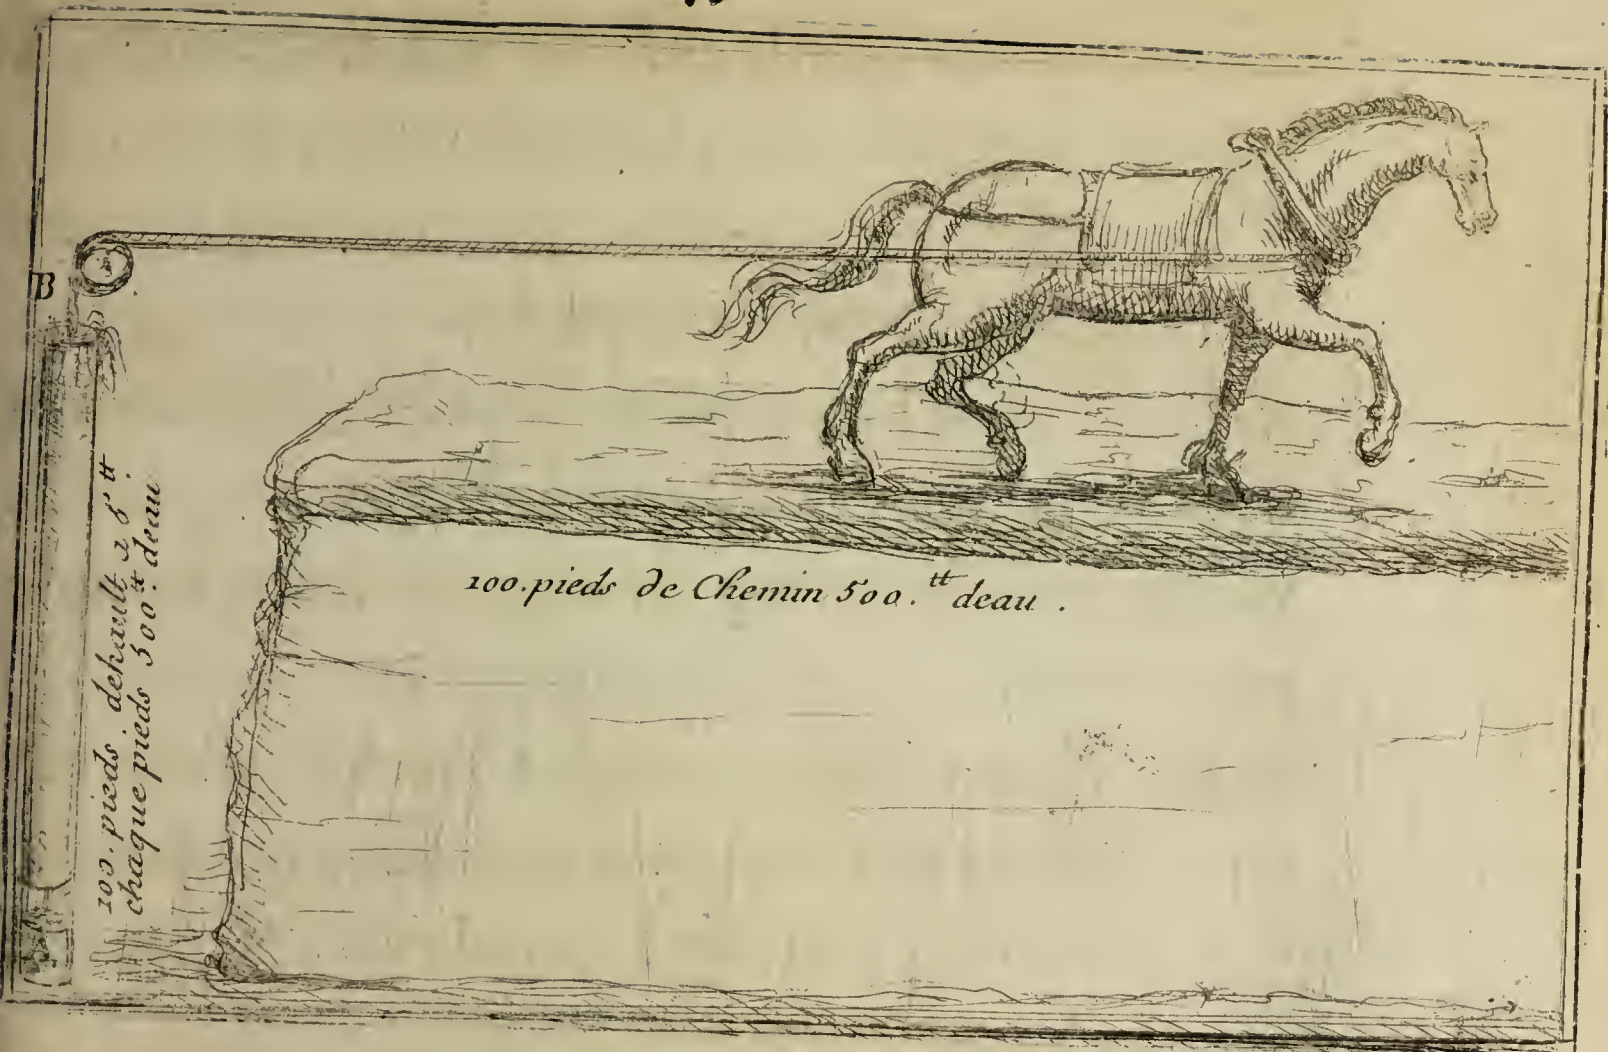 B
100. pieds dehault a 5 tt
chaque pieds 500.tt deau.
100. pieds de Chemin 500.tt deau .